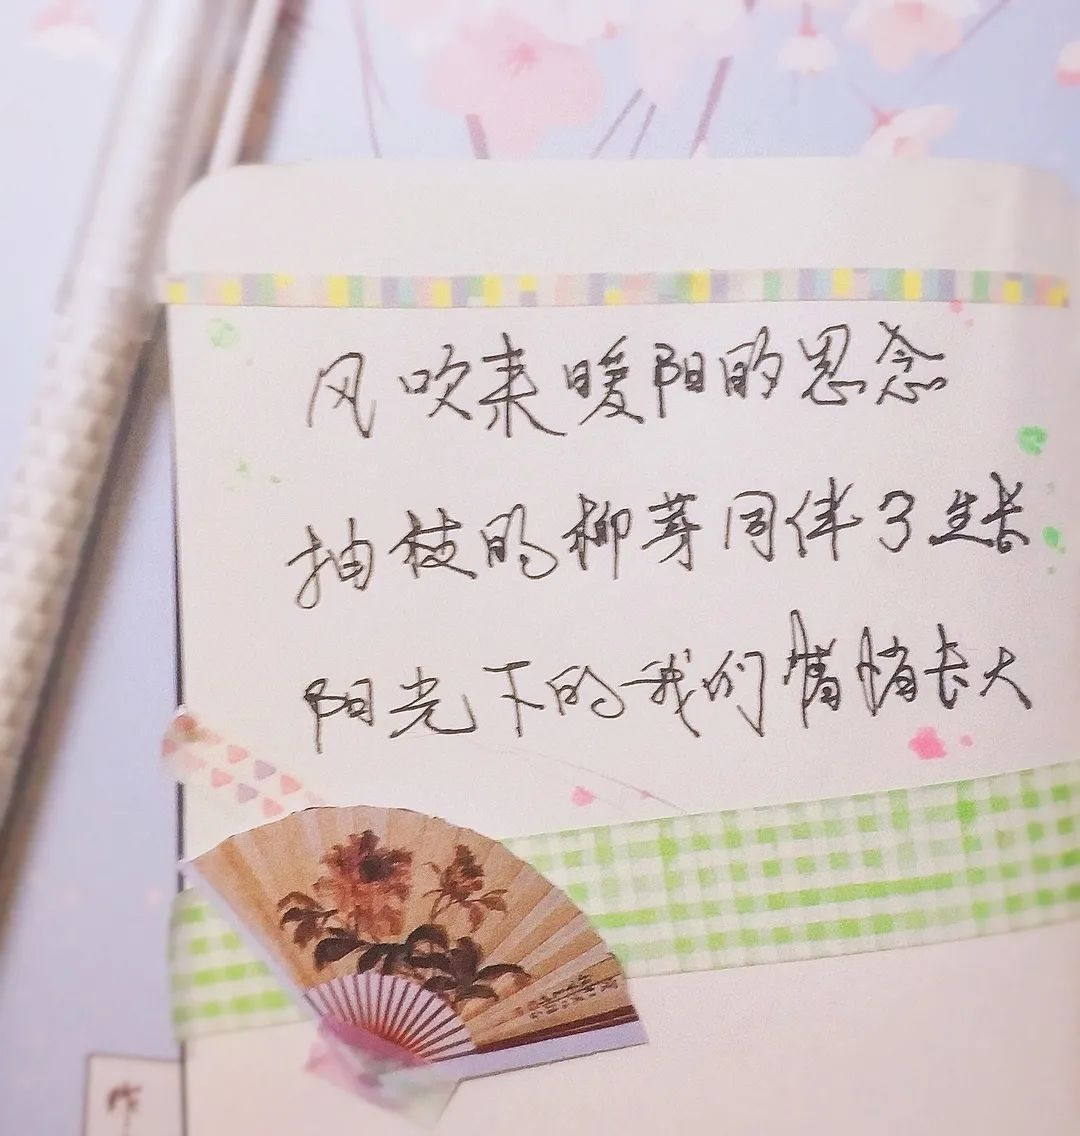 风吹来暖阳的思念
抽枝的柳芽同伴了生长
阳光下的我们悄悄长大